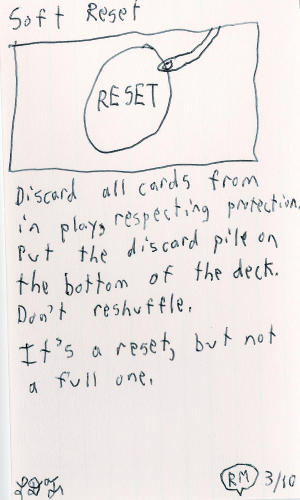 Soft Reset
RESET
Discard all cards from
in play, respecting protection.
Put the discard pile on
the bottom of the deck.
Don't reshuffle.
It's a reset, but not
a full one.
RM 3/10